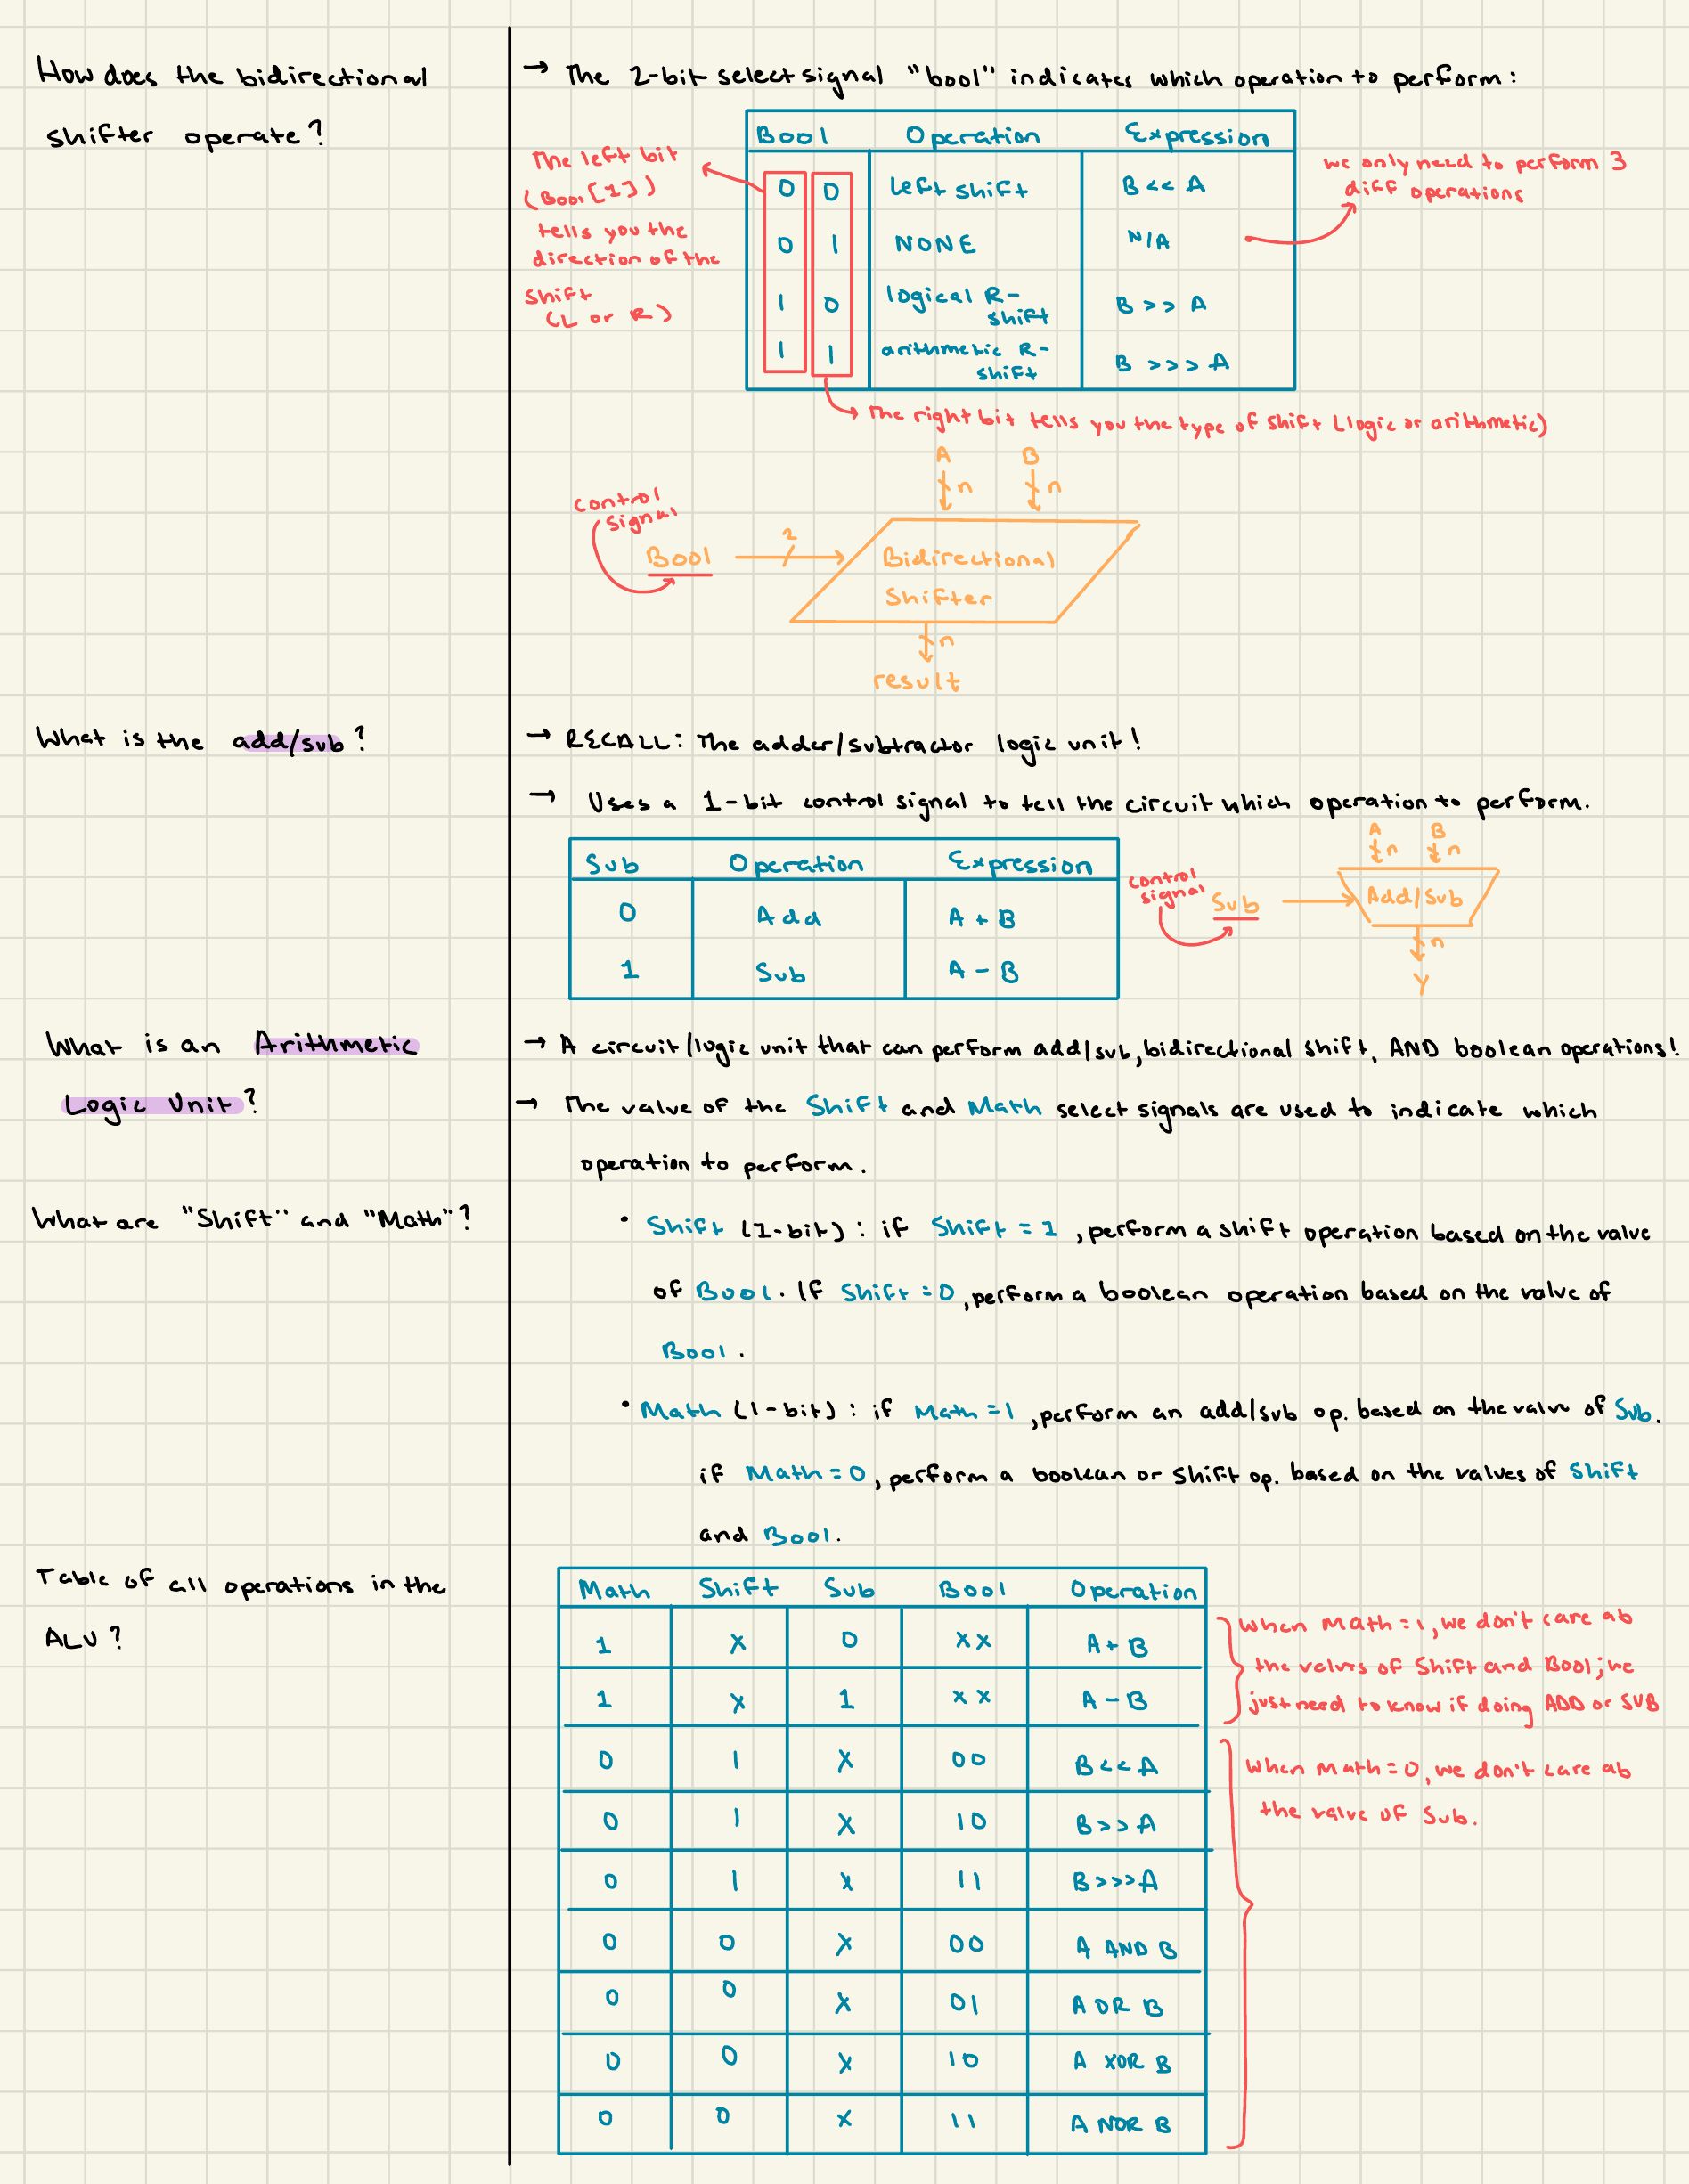 How does the bidirectional
shifter operate?
→ The 2-bit select signal "bool" indicates which operation to perform:
Bool Operation Expression
0 0 left shift B << A
0 1 NONE N/A
1 0 logical R-
shift B >> A
1 1 arithmetic R-
shift B >>> A
The left bit
(Bool[1])
tells you the
direction of the
shift
(L or R)
we only need to perform 3
diff operations
The right bit tells you the type of shift (logic or arithmetic)
A B
n n
control
signal
Bool 2 Bidirectional
Shifter
n
result
What is the add/sub?
→ RECALL: The adder/subtractor logic unit!
→ Uses a 1-bit control signal to tell the circuit which operation to perform.
Sub Operation Expression
0 Add A + B
1 Sub A - B
A B
n n
control
signal
Sub Add/Sub
n
Y
What is an Arithmetic
Logic Unit?
→ A circuit/logic unit that can perform add/sub, bidirectional shift, AND boolean operations!
→ The value of the Shift and Math select signals are used to indicate which
operation to perform.
What are "Shift" and "Math"?
• Shift (1-bit): if Shift = 1, perform a shift operation based on the value
of Bool. If Shift = 0, perform a boolean operation based on the value of
Bool.
• Math (1-bit): if Math = 1, perform an add/sub op. based on the value of Sub.
if Math = 0, perform a boolean or shift op. based on the values of Shift
and Bool.
Table of all operations in the
ALU?
Math Shift Sub Bool Operation
1 X 0 XX A + B
1 X 1 XX A - B
0 1 X 00 B << A
0 1 X 10 B >> A
0 1 X 11 B >>> A
0 0 X 00 A AND B
0 0 X 01 A OR B
0 0 X 10 A XOR B
0 0 X 11 A NOR B
When Math = 1, we don't care ab
the values of Shift and Bool; we
just need to know if doing ADD or SUB
When Math = 0, we don't care ab
the value of Sub.